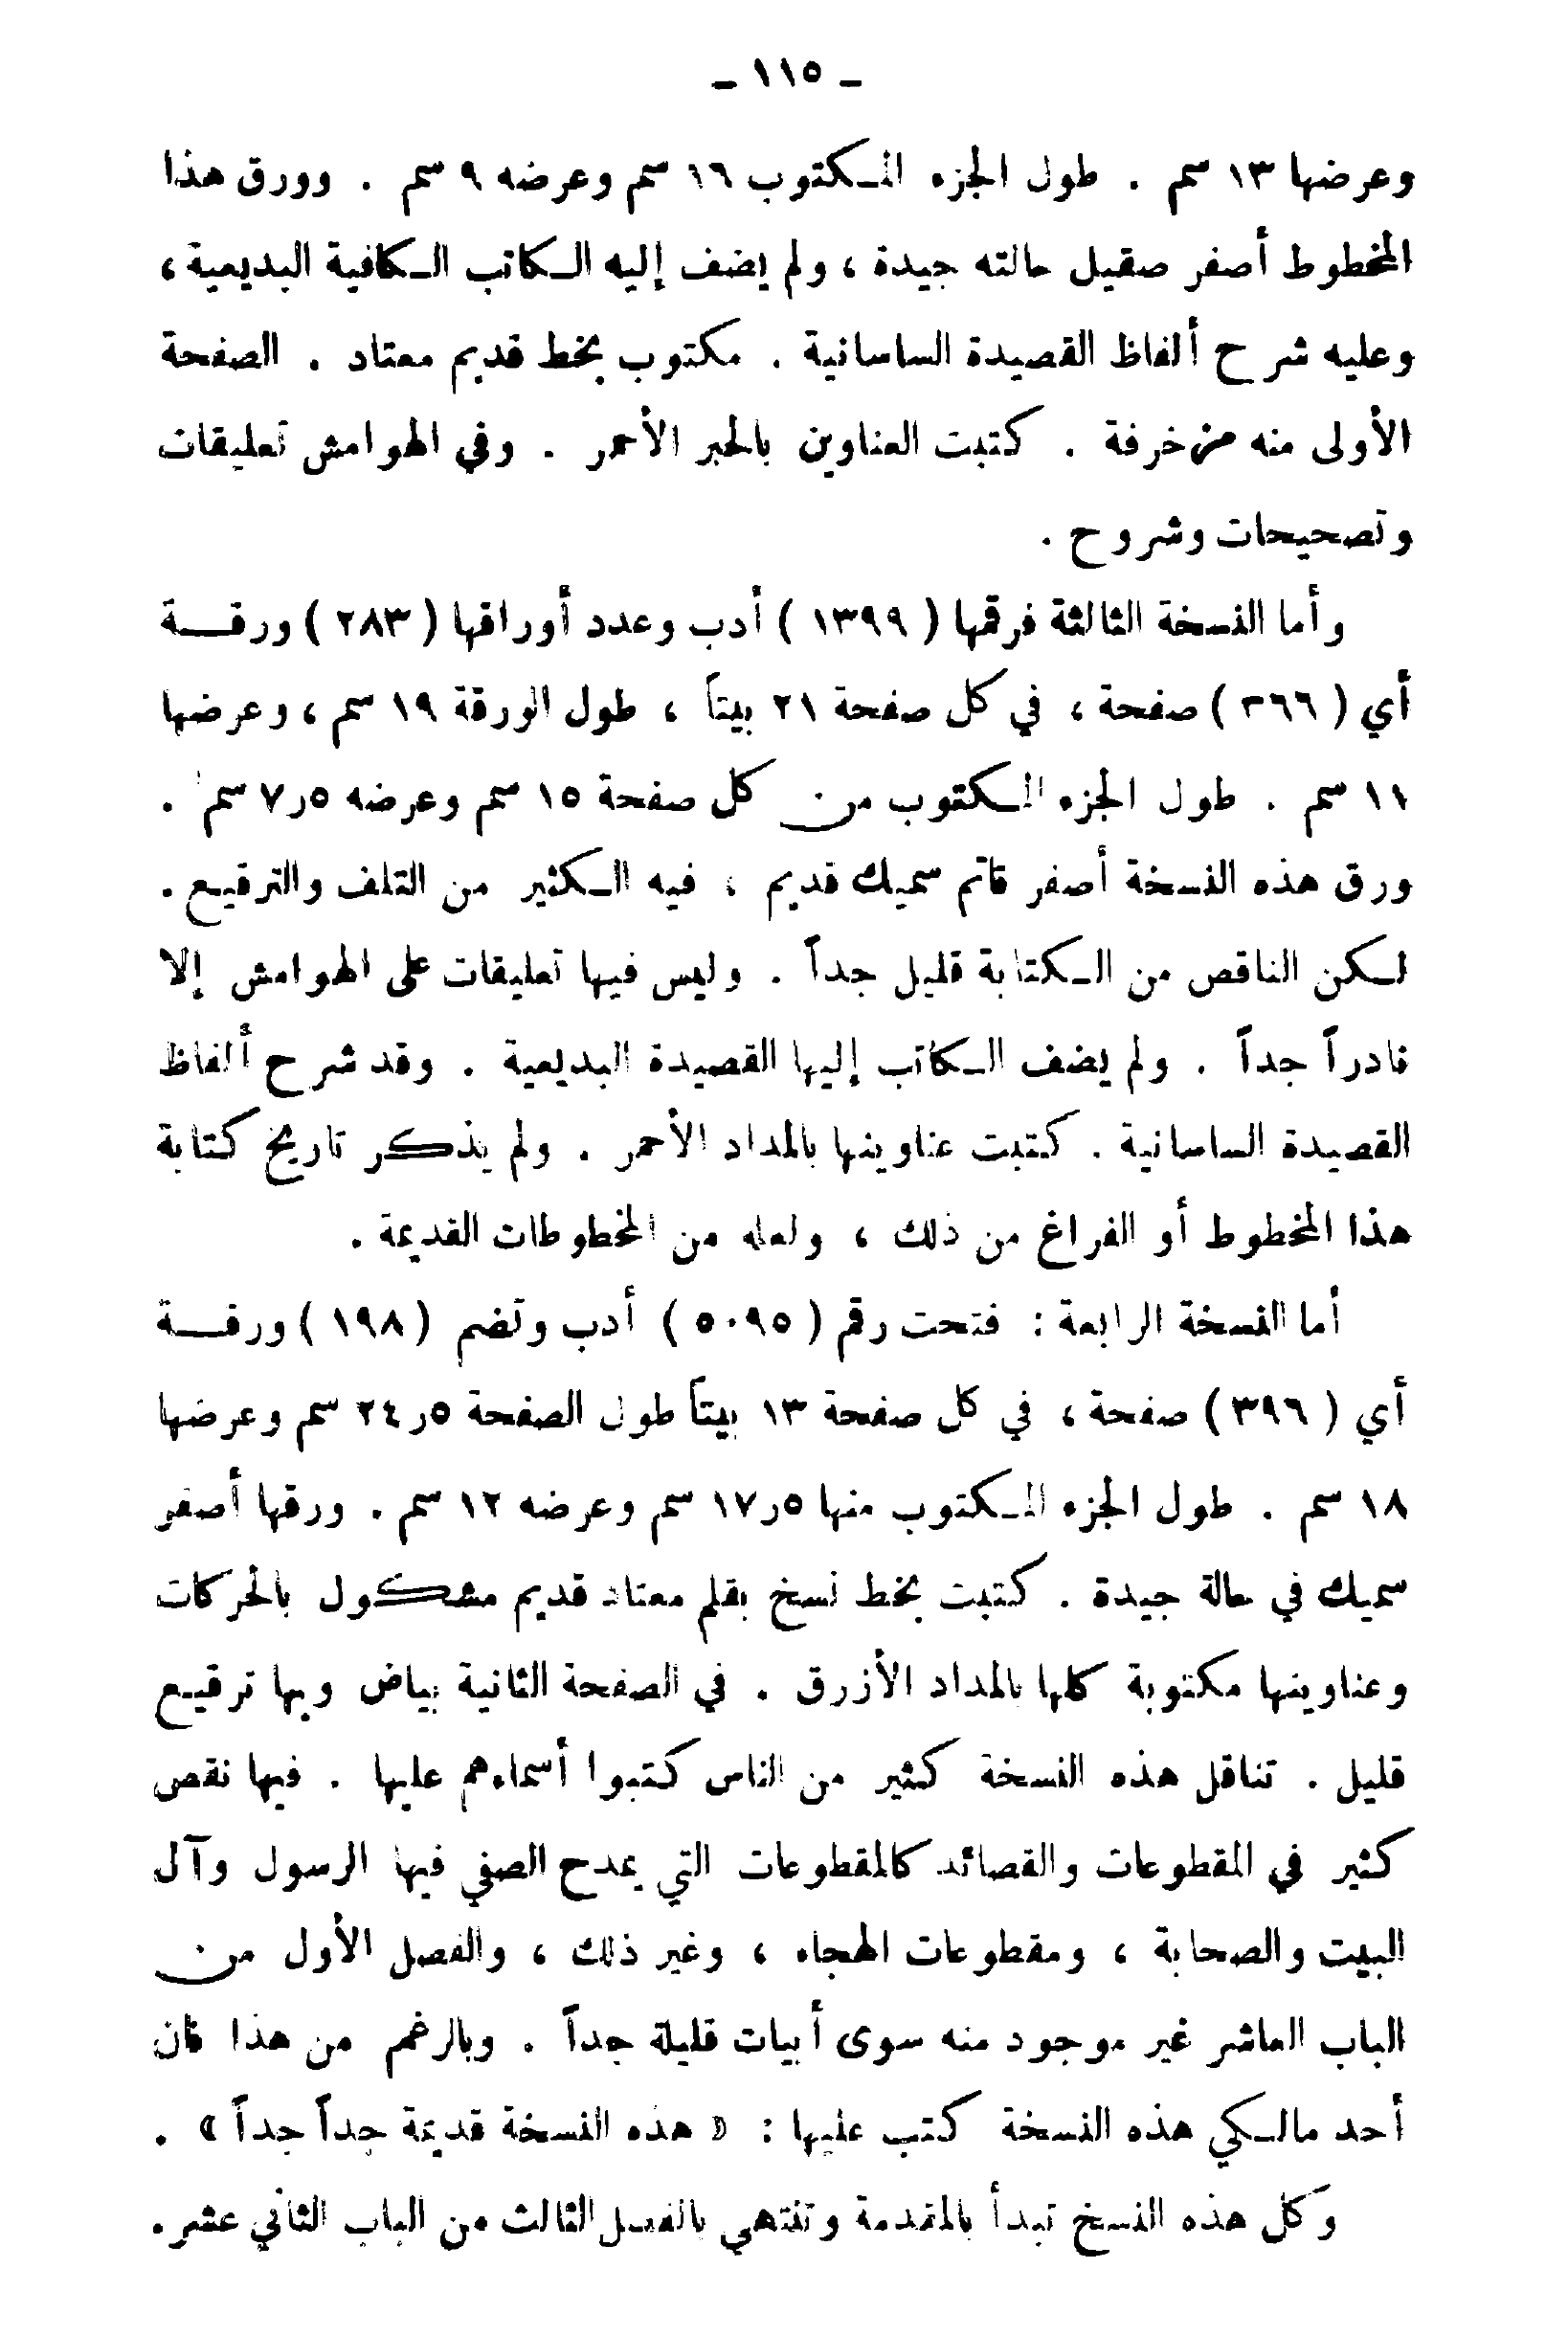 - ١١٥ -
وعرضها ١٣ سم . طول الجزء المكتوب ١٦ سم وعرضه ٩ سم . وورق هذا
المخطوط أصفر صقيل حالته جيدة ، ولم يضف إليه الكاتب الكافية البديعية ،
وعليه شرح ألفاظ القصيدة الساسانية . مكتوب بخط قديم معتاد . الصفحة
الأولى منه مزخرفة . كتبت العناوين بالحبر الأحمر . وفي الهوامش تعليقات
وتصحيحات وشروح .
وأما النسخة الثالثة فرقمها ( ١٣٩٩ ) أدب وعدد أوراقها ( ٢٨٣ ) ورقـــة
أي ( ٣٦٦ ) صفحة ، في كل صفحة ٢١ بيتاً ، طول الورقة ١٩ سم ، وعرضها
١١ سم . طول الجزء المكتوب من كل صفحة ١٥ سم وعرضه ٥ر٧ سم .
ورق هذه النسخة أصفر قاتم سميك قديم ، فيه الكثير من التلف والترقيع .
لكن الناقص من الكتابة قليل جداً . وليس فيها تعليقات على الهوامش إلا
نادراً جداً . ولم يضف الكاتب إليها القصيدة البديعية . وقد شرح ألفاظ
القصيدة الساسانية . كتبت عناوينها بالمداد الأحمر . ولم يذكر تاريخ كتابة
هذا المخطوط أو الفراغ من ذلك ، ولعله من المخطوطات القديمة .
أما النسخة الرابعة : فتحت رقم ( ٥٠٩٥ ) أدب وتضم ( ١٩٨ ) ورقـــة
أي ( ٣٩٦ ) صفحة ، في كل صفحة ١٣ بيتاً طول الصفحة ٥ر٢٤ سم وعرضها
١٨ سم . طول الجزء المكتوب منها ٥ر١٧ سم وعرضه ١٢ سم . ورقها أصفر
سميك في حالة جيدة . كتبت بخط نسخ بقلم معتاد قديم مشكول بالحركات
وعناوينها مكتوبة كلها بالمداد الأزرق . في الصفحة الثانية بياض وبها ترقيع
قليل . تناقل هذه النسخة كثير من الناس كتبوا أسماءهم عليها . فيها نقص
كثير في المقطوعات والقصائد كالمقطوعات التي يمدح الصفي فيها الرسول وآل
البيت والصحابة ، ومقطوعات الهجاء ، وغير ذلك ، والفصل الأول من
الباب العاشر غير موجود منه سوى أبيات قليلة جداً . وبالرغم من هذا فان
أحد مالكي هذه النسخة كتب عليها : « هذه النسخة قديمة جداً جداً » .
وكل هذه النسخ تبدأ بالمقدمة وتنتهي بالفصل الثالث من الباب الثاني عشر .